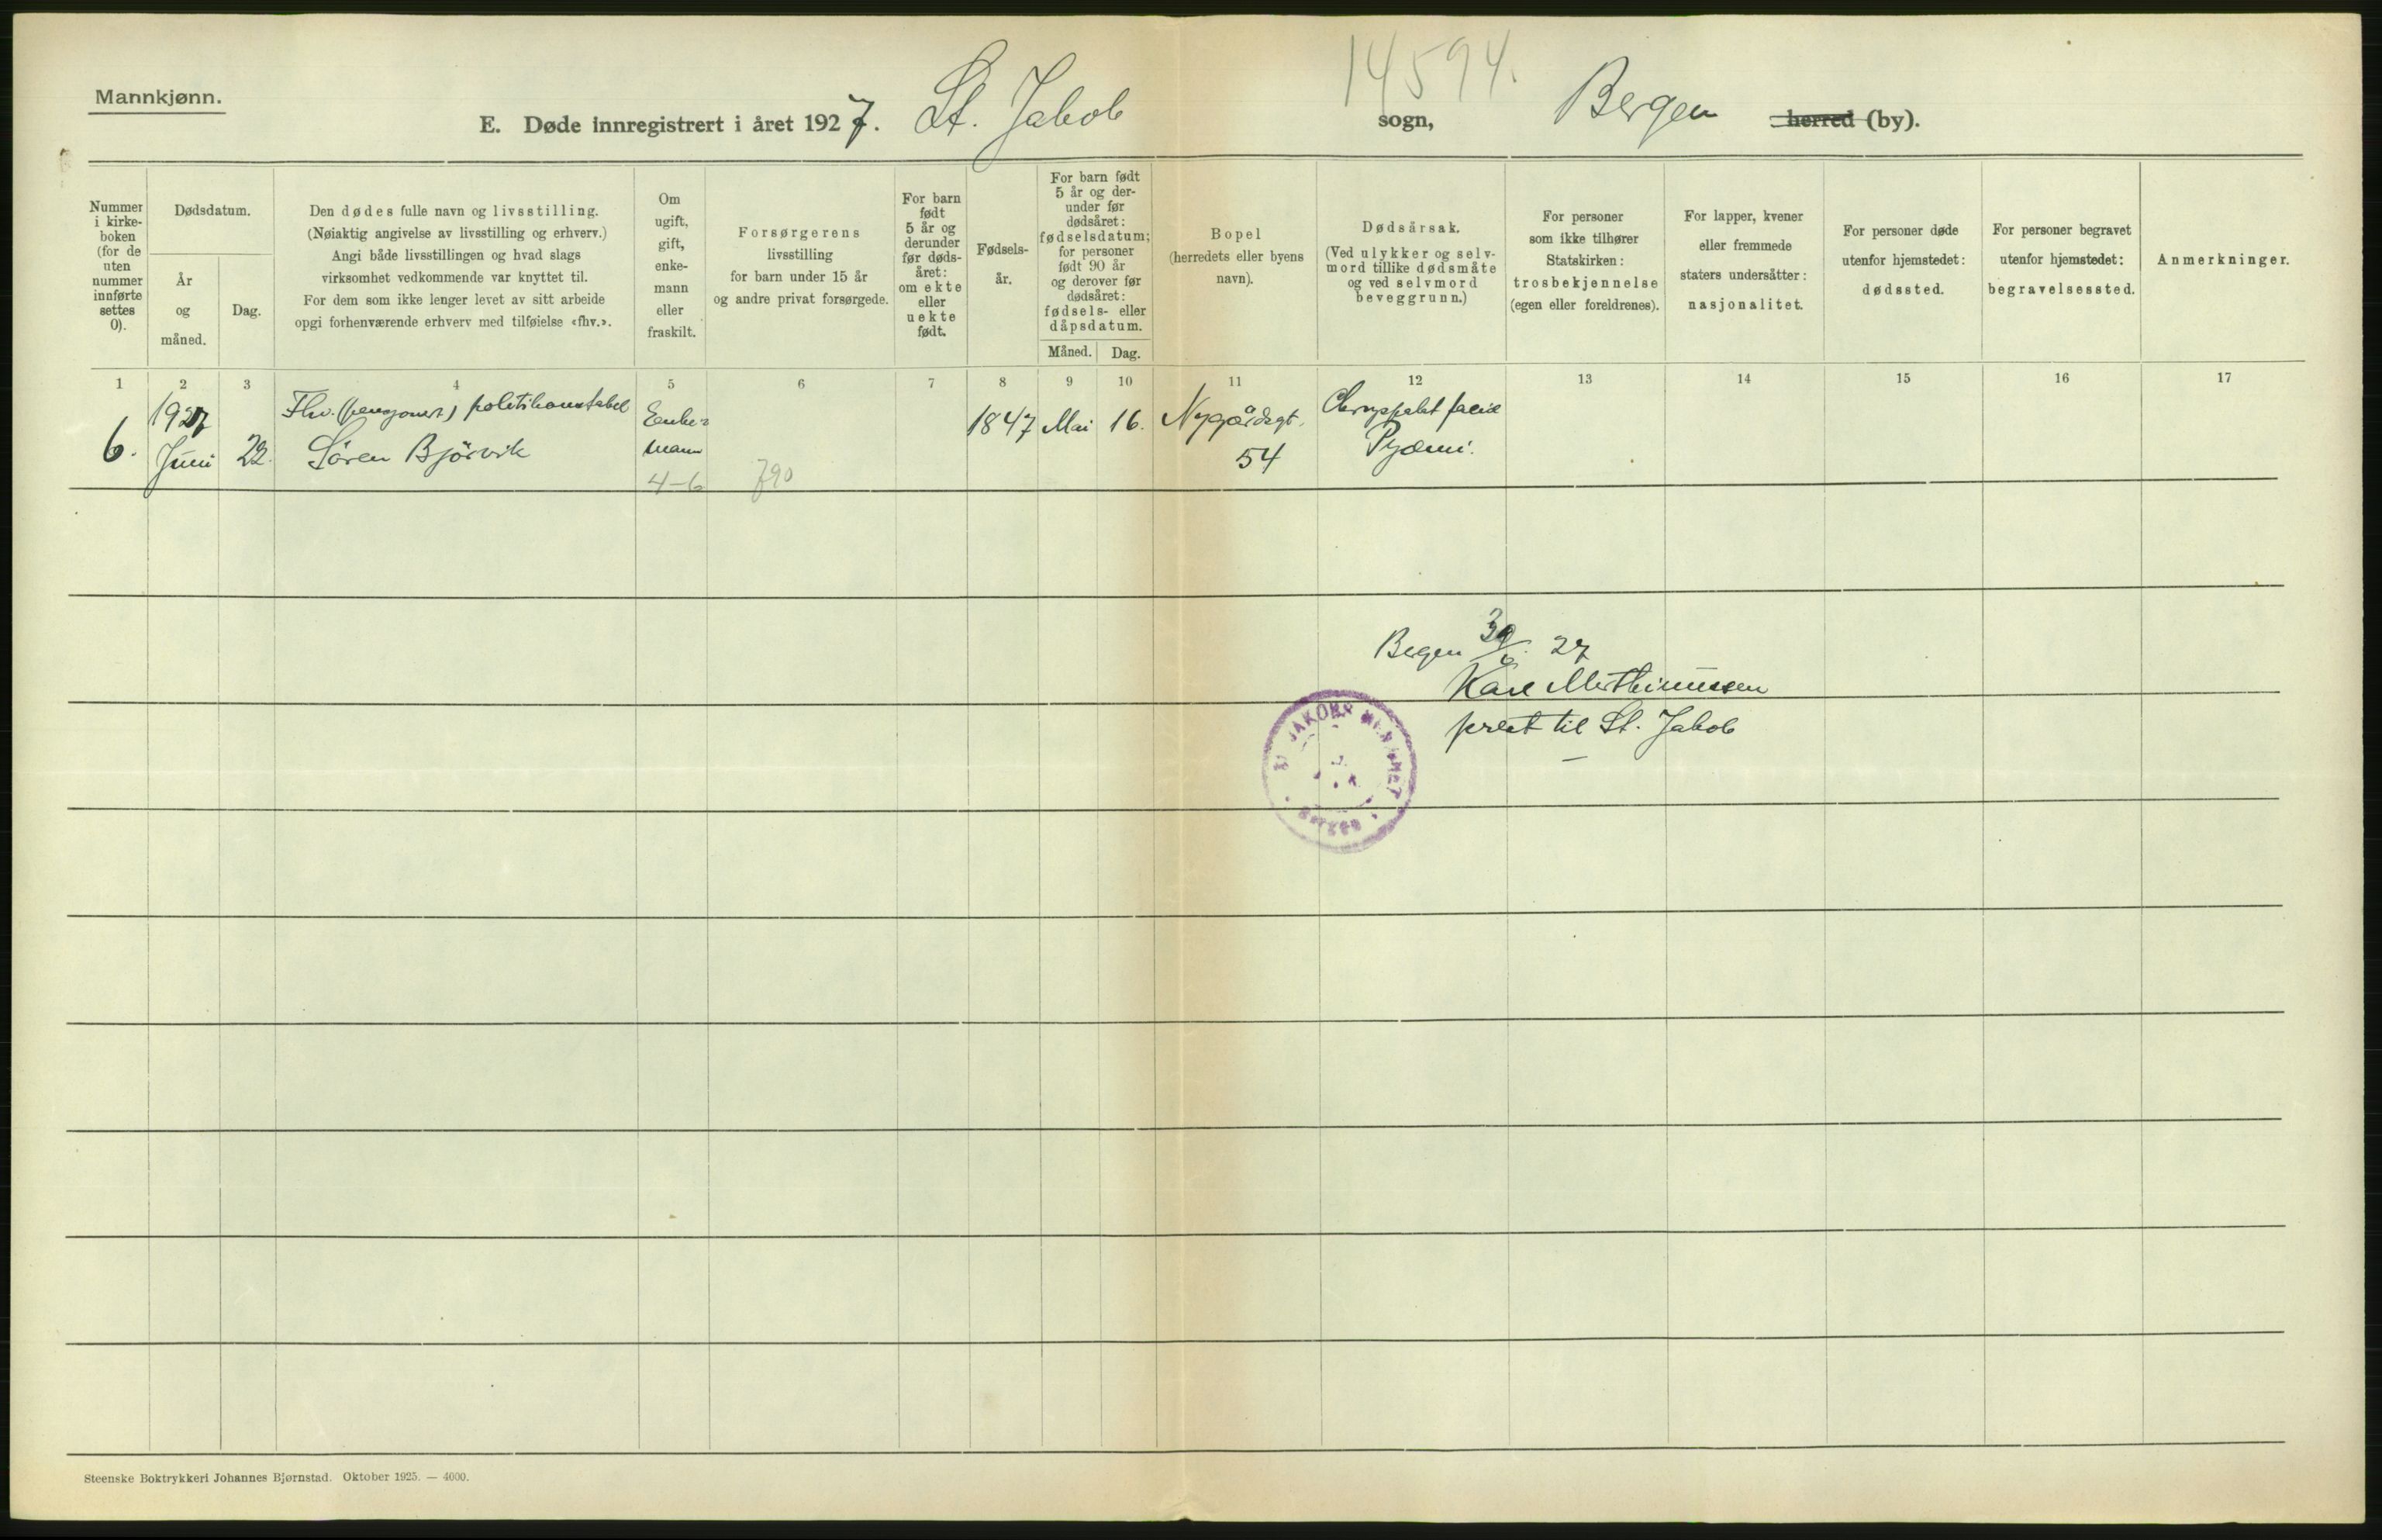 Mannkjønn.
14594.
E. Døde innregistrert i året 1927. St. Jakob sogn, Bergen herred (by).
Nummer
i kirke-
boken
(for de
uten
nummer
innførte
settes
0).
Dødsdatum.
År
og
måned.
Dag.
Den dødes fulle navn og livsstilling.
(Nøiaktig angivelse av livsstilling og erhverv.)
Angi både livsstillingen og hvad slags
virksomhet vedkommende var knyttet til.
For dem som ikke lenger levet av sitt arbeide
opgi forhenværende erhverv med tilføielse «fhv.».
Om
ugift,
gift,
enke-
mann
eller
fraskilt.
Forsørgerens
livsstilling
for barn under 15 år
og andre privat forsørgede.
For barn
født
5 år og
derunder
før døds-
året:
om ekte
eller
uekte
født.
Fødsels-
år.
For barn født
5 år og der-
under før
dødsåret:
fødselsdatum;
for personer
født 90 år
og derover før
dødsåret:
fødsels- eller
dåpsdatum.
Måned.
Dag.
Bopel
(herredets eller byens
navn).
Dødsårsak.
(Ved ulykker og selv-
mord tillike dødsmåte
og ved selvmord
beveggrunn.)
For personer
som ikke tilhører
Statskirken:
trosbekjennelse
(egen eller foreldrenes).
For lapper, kvener
eller fremmede
staters undersåtter:
nasjonalitet.
For personer døde
utenfor hjemstedet:
dødssted.
For personer begravet
utenfor hjemstedet:
begravelsessted.
Anmerkninger.
1 2 3 4 5 6 7 8 9 10 11 12 13 14 15 16 17
6.
1927
Juni
22.
Fhv. (pensjonert) politikonstabel
Sören Björvik
Enke-
mann
4-6
790
1847 Mai 16.
Nygårdsgt.
54
Erysipelas faciei
Pyæmi.
Bergen 30/6 27
prest til St. Jakob
ST JAKOBS MENIGHET
BERGEN
Steenske Boktrykkeri Johannes Bjørnstad. Oktober 1925. — 4000.